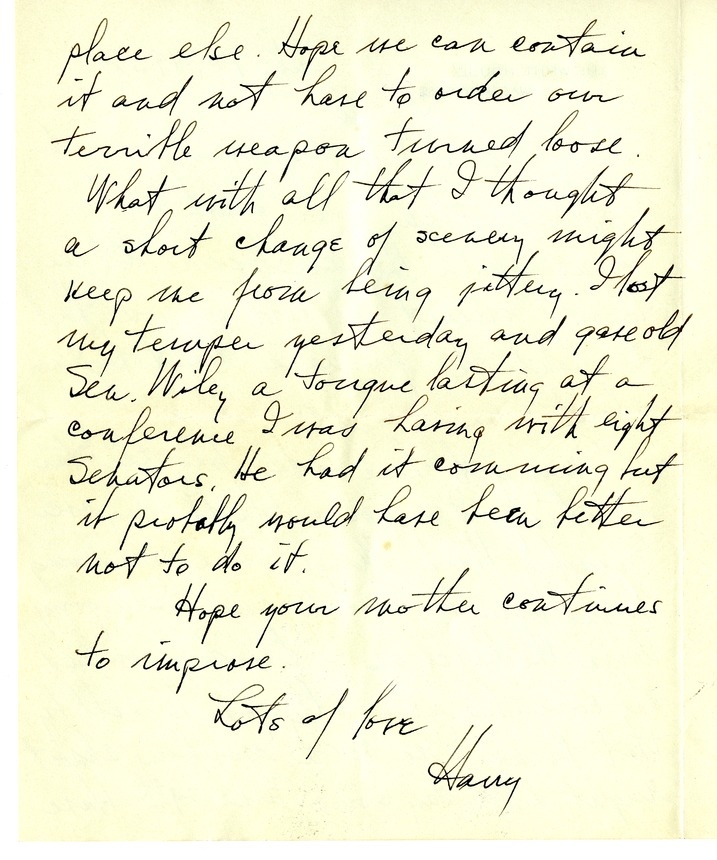 place else. Hope we can contain
it and not have to order our
terrible weapon turned loose.
What with all that I thought
a short change of scenery might
keep me from being jittery. I lost
my temper yesterday and gave old
Sen. Wiley a tongue lasting at a
conference I was having with eight
Senators. He had it comming but
it probably would have been better
not to do it.
Hope your mother continues
to improve.
Lots of love
Harry